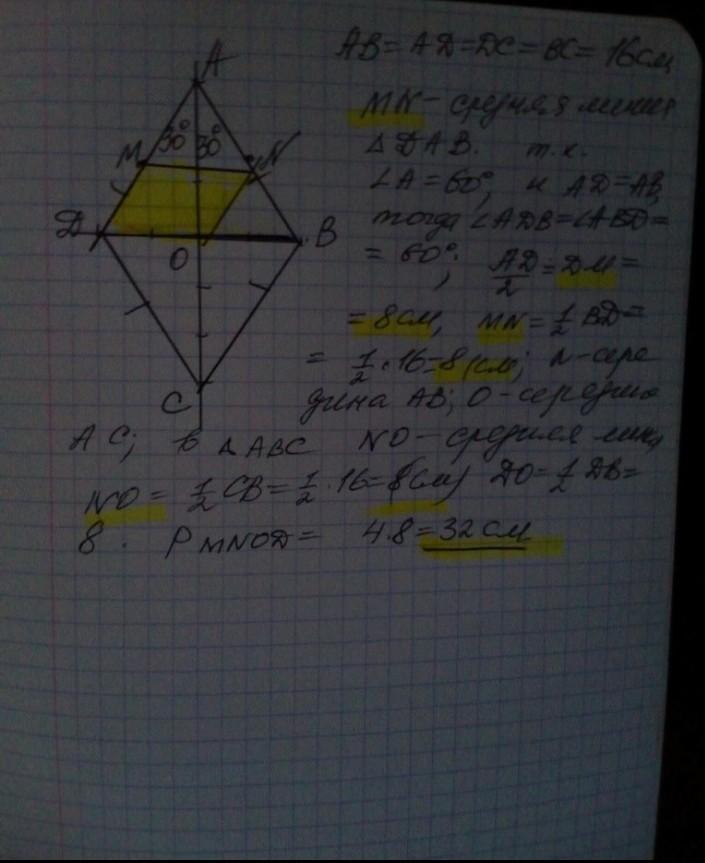 A
AB = AD = DC = BC = 16 см
MN - средняя линия
30° 30°
M N
△DAB. т.к.
∠A = 60°, и AD = AB,
D B
тогда ∠ADB = ∠ABD =
O
= 60°; AD/2 = DM =
= 8 см, MN = 1/2 BD =
= 1/2 · 16 = 8 (см); N - сере
C
дина AB; O - середина
AC; в △ABC NO - средняя лин.
NO = 1/2 CB = 1/2 · 16 = 8 (см) DO = 1/2 DB =
8. P MNOD = 4·8 = 32 см